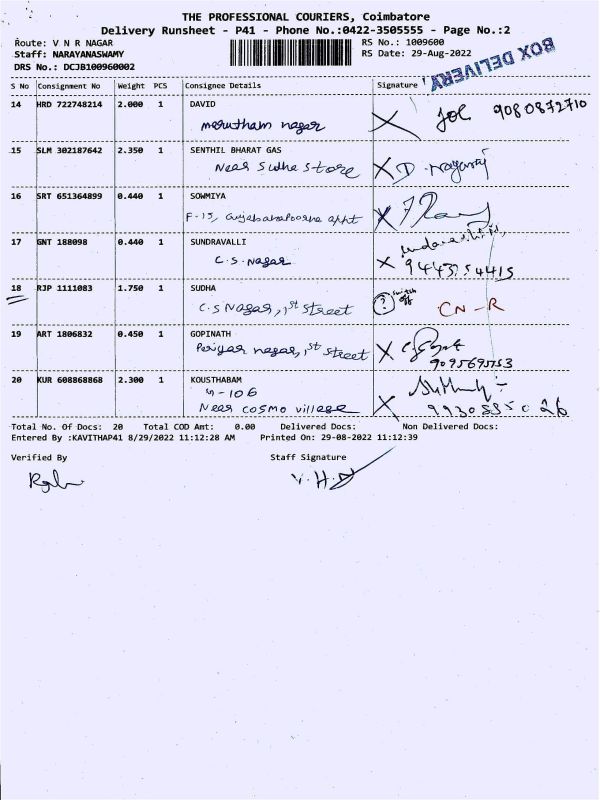 THE PROFESSIONAL COURIERS, Coimbatore
Delivery Runsheet - P41 - Phone No.:0422-3505555 - Page No.:2
Route: V N R NAGAR RS No.: 1009600
Staff: NARAYANASWAMY RS Date: 29-Aug-2022
DRS No.: DCJB100960002
BOX DELIVERY
S No Consignment No Weight PCS Consignee Details Signature
14 HRD 722748214 2.000 1 DAVID
marutham nagar Joe 9080872710
15 SLM 302187642 2.350 1 SENTHIL BHARAT GAS
Near Sudha Store
16 SRT 651364899 0.440 1 SOWMIYA
F-15, appt
17 GNT 188098 0.440 1 SUNDRAVALLI
C.S. Nagar
18 RJP 1111083 1.750 1 SUDHA
C.S Nagar, 1st Street ? switch off CN-R
19 ART 1806832 0.450 1 GOPINATH
Periyar nagar, 1st Street
20 KUR 608868868 2.300 1 KOUSTHABAM
G-106
Near cosmo village
Total No. Of Docs: 20 Total COD Amt: 0.00 Delivered Docs: Non Delivered Docs:
Entered By :KAVITHAP41 8/29/2022 11:12:28 AM Printed On: 29-08-2022 11:12:39
Verified By Staff Signature